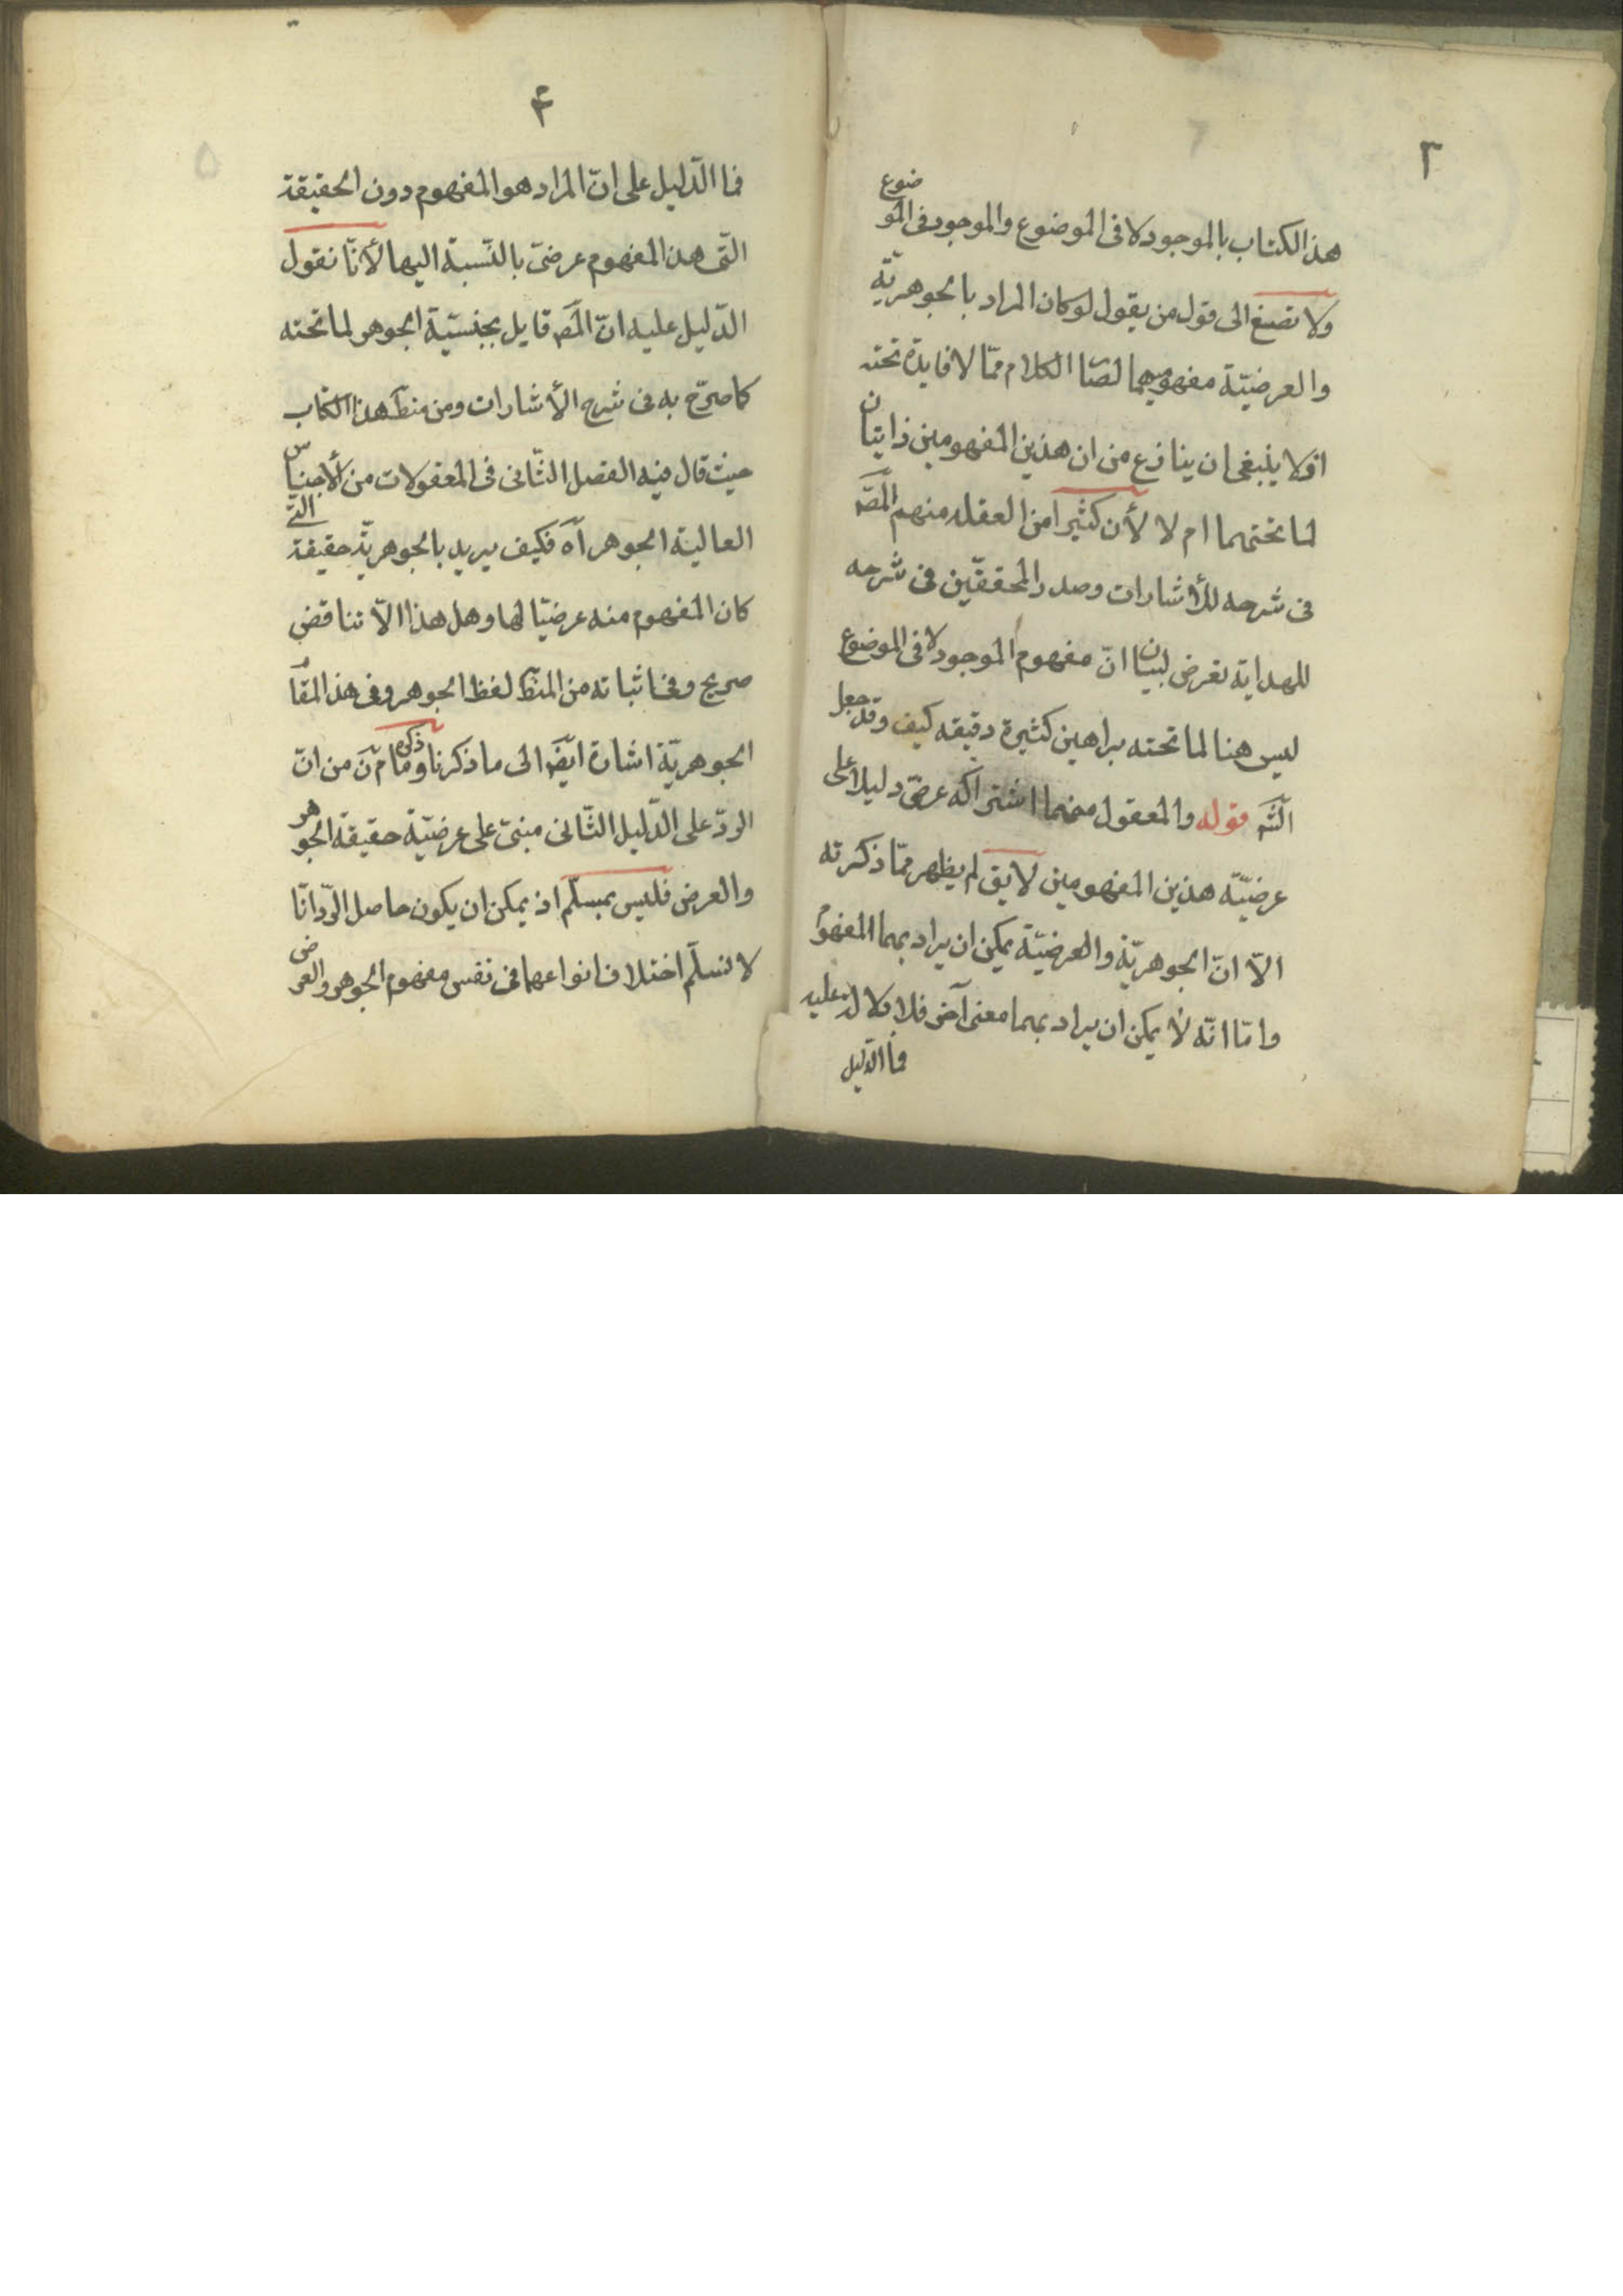 ٣
هذ الكتاب بالموجود لا فى الموضوع والموجود فى الموضوع
ولا تصغ الى قول من يقول لو كان المراد بالجوهريّة
والعرضيّة مفهوميهما لصا الكلام ممّا لا فايدة تحته
اذ لا ينبغى ان ينازع من ان هذين المفهومين ذاتيان
لما تحتهما ام لا لأن كثيرا من العقلا منهم المصّ
فى شرحه للأشارات وصدر المحققّين فى شرحه
للهداية تعرض لبيان انّ مفهوم الموجود لا فى الموضوع
ليس هنا لما تحته براهين كثيرة دقيقه كيف وقد جعل
الشّ قوله والمعقول منهما اشتراكه عرضىّ دليلا على
عرضيّة هذين المفهومين لا يق لم يظهر ممّا ذكرته
الّا انّ الجوهريّة والعرضيّة يمكن ان يراد بهما المفهوم
وامّا انّه لا يمكن ان يراد بهما معنى آخر فلا دلالة عليه
فما الدّليل
۴
فما الدّليل على انّ المراد هو المفهوم دون الحقيقة
الّتى هذ المفهوم عرضىّ بالنّسبة اليها لأنّا نقول
الدّليل عليه انّ المصّ قايل بجنسيّة الجوهر لما تحته
كما صرّح به فى شرح الأشارات ومن منط هذا الكتاب
حيث قال فيه الفصل الثّانى فى المعقولات من الأجناس
العالية الجوهر آه فكيف يريد بالجوهريّة حقيقة الّتى
كان المفهوم منه عرضيّا لها وهل هذا الّا تناقض
صريح وفى اثباته من المنط لفظ الجوهر وفى هذ المقام
الجوهريّة اشارة ايضا الى ما ذكرنا وما ذكره م نّ من انّ
الردّ على الدّليل الثّانى مبنىّ على عرضيّة حقيقة الجوهر
والعرض فليس بمسلّم اذ يمكن ان يكون حاصل الردّ انّا
لا نسلّم اختلاف انواعهما فى نفس مفهوم الجوهر والعرض
۵